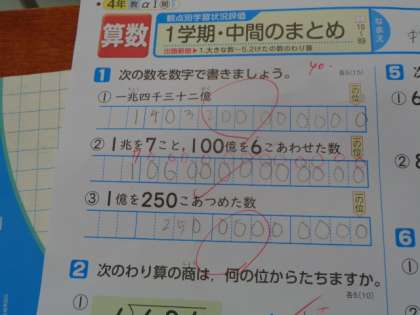 4年 教 α1
観点別学習状況評価
算数
1学期・中間のまとめ
出題範囲 1.大きな数〜5.2けたの数のわり算
なまえ
1 次の数を数字で書きましょう。
各5(15)
40
① 一兆四千三十二億
一の位
② 1兆を7こと,100億を6こあわせた数
一の位
③ 1億を250こあつめた数
一の位
250 00000000
2 次のわり算の商は、何の位からたちますか。
各5(10)
①
5
①
②
6
①